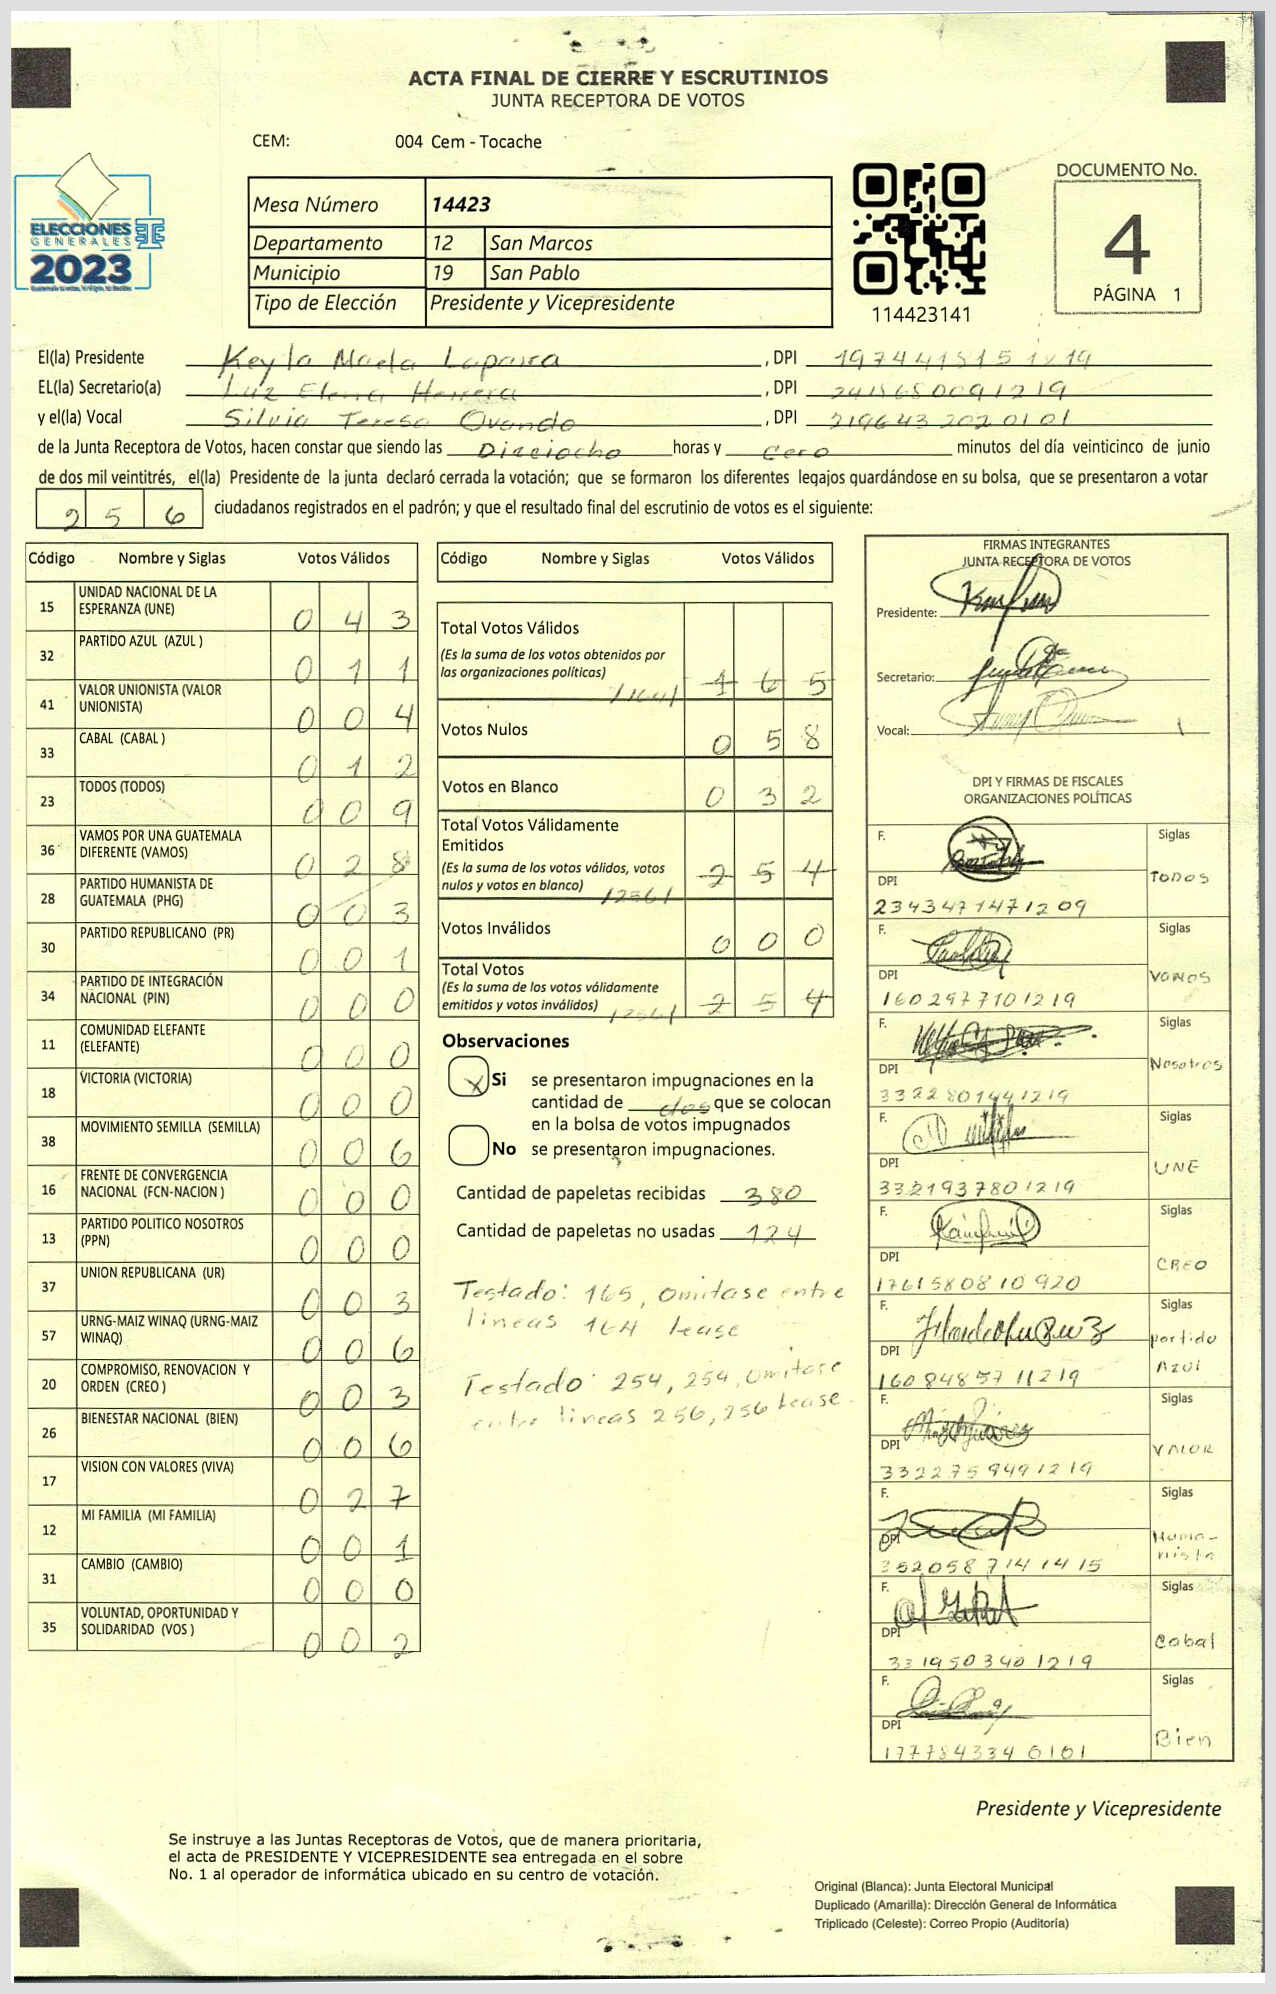 ACTA FINAL DE CIERRE Y ESCRUTINIOS
JUNTA RECEPTORA DE VOTOS
CEM: 004 Cem - Tocache
ELECCIONES
GENERALES
2023
Mesa Número 14423
Departamento 12 San Marcos
Municipio 19 San Pablo
Tipo de Elección Presidente y Vicepresidente
114423141
DOCUMENTO No.
4
PÁGINA 1
El(la) Presidente Keyla Maela Laparra, DPI
EL(la) Secretario(a) Luz Elena Herrera, DPI
y el(la) Vocal Silvia Teresa Ovando, DPI 219643 202 0101
de la Junta Receptora de Votos, hacen constar que siendo las Dieciocho horas y Cero minutos del día veinticinco de junio
de dos mil veintitrés, el(la) Presidente de la junta declaró cerrada la votación; que se formaron los diferentes legajos guardándose en su bolsa, que se presentaron a votar
2 5 6 ciudadanos registrados en el padrón; y que el resultado final del escrutinio de votos es el siguiente:
Código Nombre y Siglas Votos Válidos
15 UNIDAD NACIONAL DE LA ESPERANZA (UNE) 0 4 3
32 PARTIDO AZUL (AZUL ) 0 1 1
41 VALOR UNIONISTA (VALOR UNIONISTA) 0 0 4
33 CABAL (CABAL ) 0 1 2
23 TODOS (TODOS) 0 0 9
36 VAMOS POR UNA GUATEMALA DIFERENTE (VAMOS) 0 2 8
28 PARTIDO HUMANISTA DE GUATEMALA (PHG) 0 0 3
30 PARTIDO REPUBLICANO (PR) 0 0 1
34 PARTIDO DE INTEGRACIÓN NACIONAL (PIN) 0 0 0
11 COMUNIDAD ELEFANTE (ELEFANTE) 0 0 0
18 VICTORIA (VICTORIA) 0 0 0
38 MOVIMIENTO SEMILLA (SEMILLA) 0 0 6
16 FRENTE DE CONVERGENCIA NACIONAL (FCN-NACION ) 0 0 0
13 PARTIDO POLITICO NOSOTROS (PPN) 0 0 0
37 UNION REPUBLICANA (UR) 0 0 3
57 URNG-MAIZ WINAQ (URNG-MAIZ WINAQ) 0 0 6
20 COMPROMISO, RENOVACION Y ORDEN (CREO ) 0 0 3
26 BIENESTAR NACIONAL (BIEN) 0 0 6
17 VISION CON VALORES (VIVA) 0 2 7
12 MI FAMILIA (MI FAMILIA) 0 0 1
31 CAMBIO (CAMBIO) 0 0 0
35 VOLUNTAD, OPORTUNIDAD Y SOLIDARIDAD (VOS ) 0 0 2
Código Nombre y Siglas Votos Válidos
Total Votos Válidos
(Es la suma de los votos obtenidos por
las organizaciones políticas) /164/ 1 6 5
Votos Nulos 0 5 8
Votos en Blanco 0 3 2
Total Votos Válidamente
Emitidos
(Es la suma de los votos válidos, votos
nulos y votos en blanco) /256/ 2 5 4
Votos Inválidos 0 0 0
Total Votos
(Es la suma de los votos válidamente
emitidos y votos inválidos) /256/ 2 5 4
Observaciones
X Si se presentaron impugnaciones en la
cantidad de dos que se colocan
en la bolsa de votos impugnados
No se presentaron impugnaciones.
Cantidad de papeletas recibidas 380
Cantidad de papeletas no usadas 124
Testado: 165, omitase entre
lineas 164 lease
Testado: 254, 254, omitase
entre lineas 256, 256 lease.
FIRMAS INTEGRANTES
JUNTA RECEPTORA DE VOTOS
Presidente:
Secretario:
Vocal:
DPI Y FIRMAS DE FISCALES
ORGANIZACIONES POLÍTICAS
F. Siglas
DPI TODOS
2343471471209
F. Siglas
DPI VAMOS
1602977101219
F. Siglas
DPI Nosotros
3322801441219
F. Siglas
DPI UNE
3321937801219
F. Siglas
DPI CREO
1761580810920
F. Siglas
DPI partido Azul
1608485711219
F. Siglas
DPI VALOR
3322759491219
F. Siglas
DPI Humanista
3520587141415
F. Siglas
DPI Cabal
3319503401219
F. Siglas
DPI Bien
1777843340101
Presidente y Vicepresidente
Se instruye a las Juntas Receptoras de Votos, que de manera prioritaria,
el acta de PRESIDENTE Y VICEPRESIDENTE sea entregada en el sobre
No. 1 al operador de informática ubicado en su centro de votación.
Original (Blanca): Junta Electoral Municipal
Duplicado (Amarilla): Dirección General de Informática
Triplicado (Celeste): Correo Propio (Auditoría)